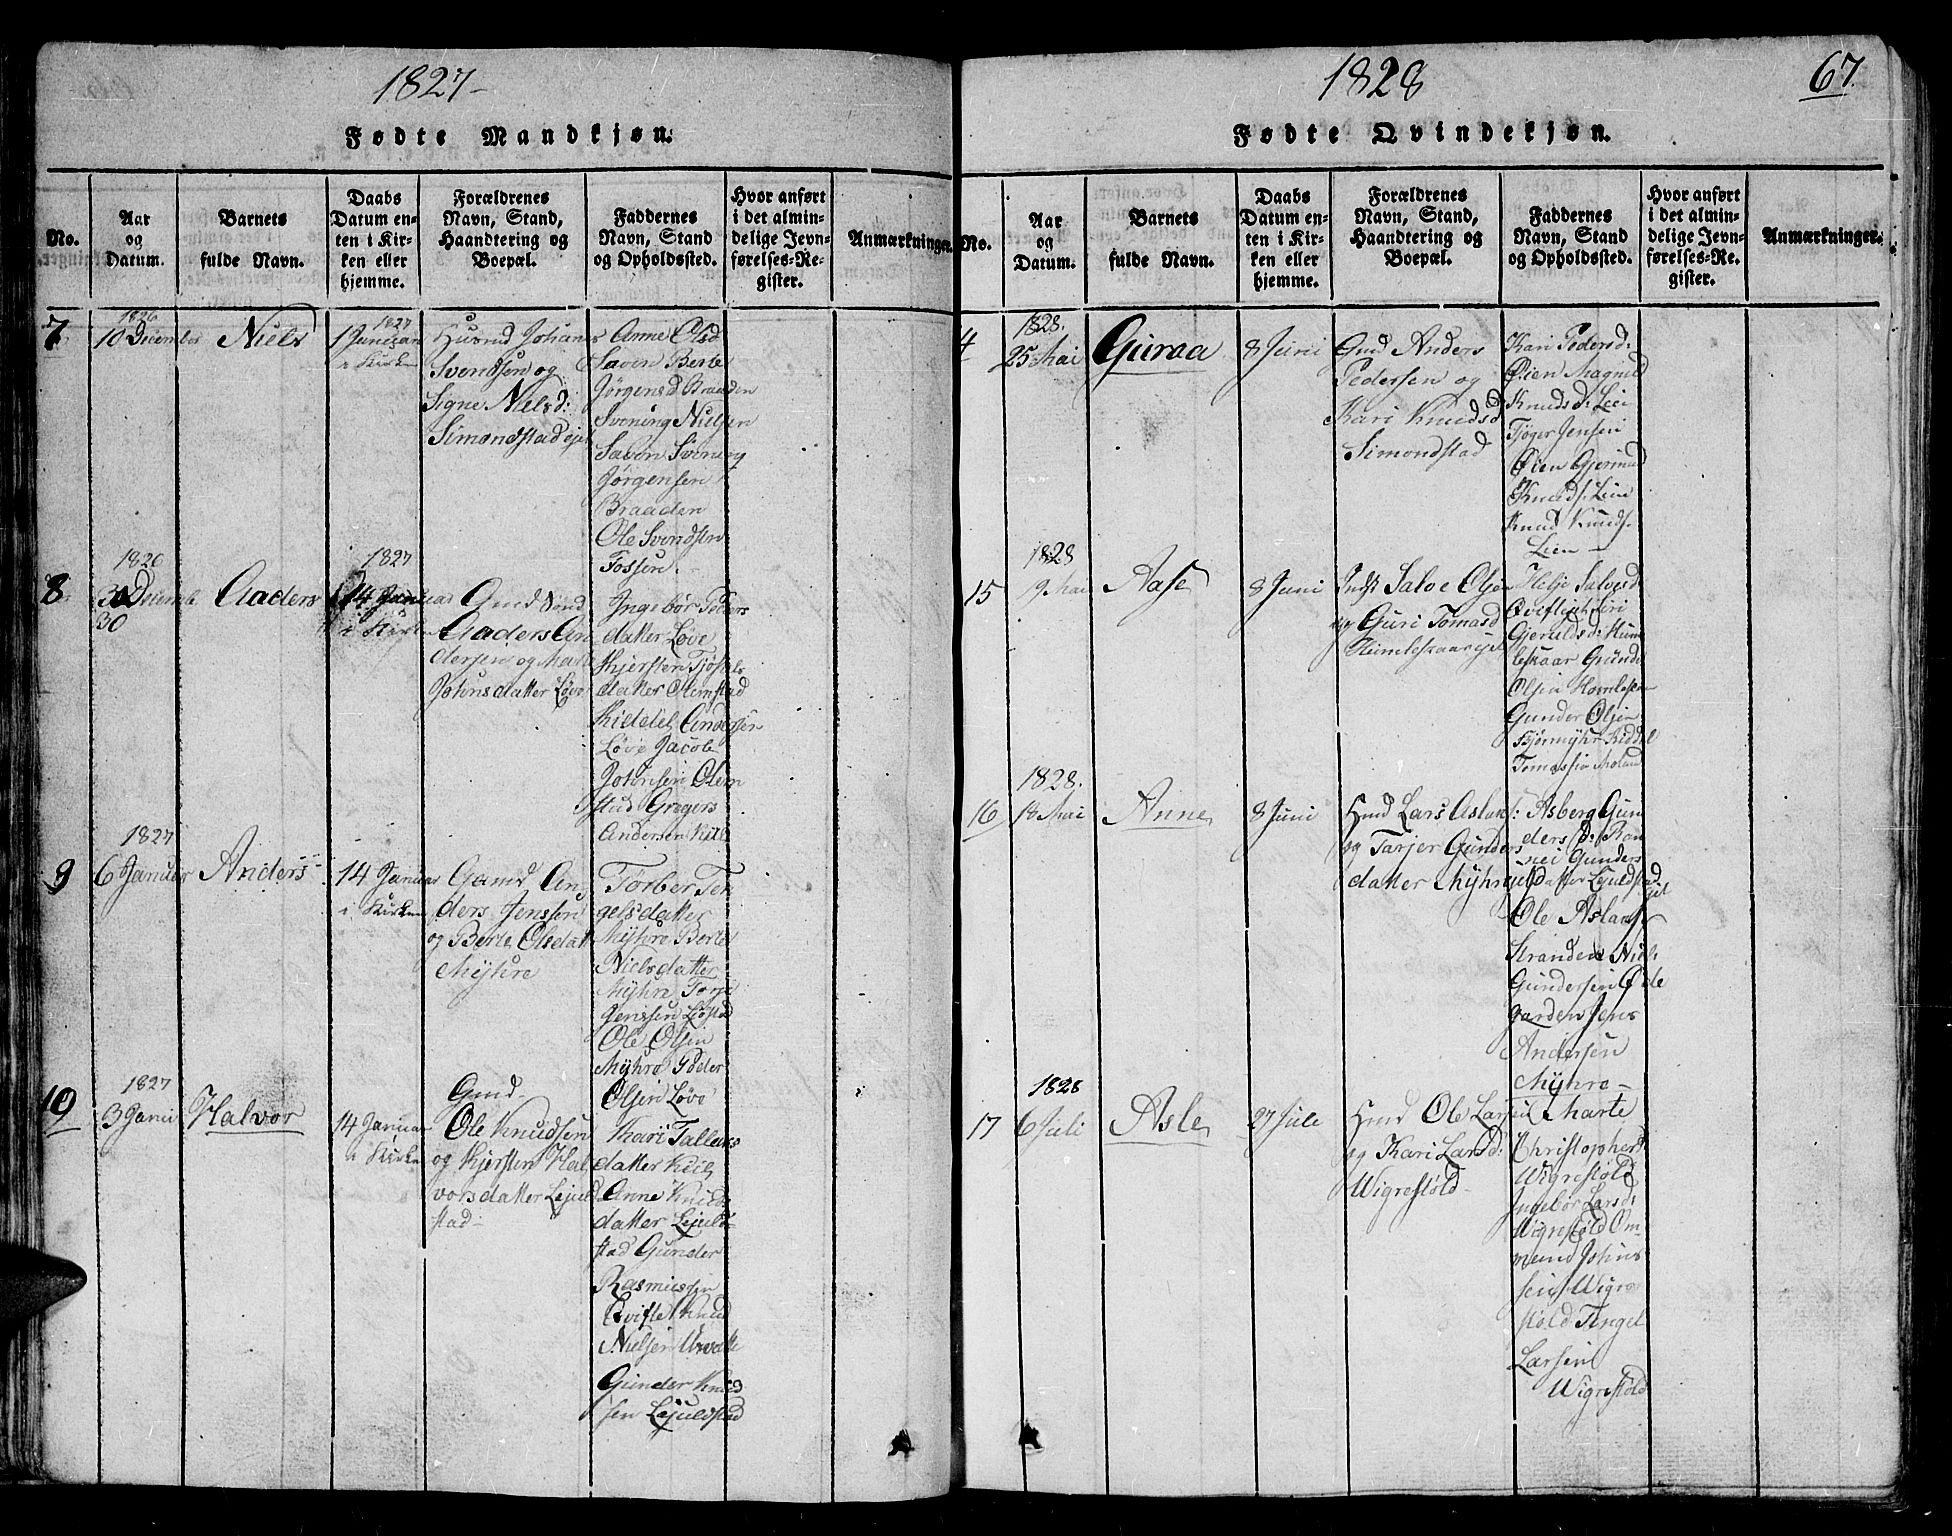 1827
Fødte Mandkjøn.
No.
Aar
og
Datum.
Barnets
fulde Navn.
Daabs
Datum en-
ten i Kir-
ken eller
hjemme.
Forældrenes
Navn, Stand,
Haandtering og
Boepæl.
Faddernes
Navn, Stand
og Opholdssted.
Hvor anført
i det almin-
delige Jevn-
førelses-Re-
gister.
Anmærkninger.
7
1826
10 December
Niels
1827
1 Januar
i Kirken
Huusmd Johanes
Svendsen og
Signe Nielsd:
Simondstad
Anne Olsd
Berte
Jørgensd Braaden
Svening Nielsen
Svening
Jørgensen
Braaden
Ole Svendsen
Fossen
8
1826
30
Aaders
1827
14 Januar
i Kirken
Gmd
Aaders An
dersen og
Johnsdatter Løve
Ingebor Peders
datter Løve
Kjersten
datter Olimstad
Kiddel Andersen
Løve Jacob
Johnsen Olim
stad Gregers
Andersen
9
1827
6 Januar
Anders
14 Januar
i Kirken
Gamd An
ders Jenssen
og Berte Olsdatt
Myhre
Torber Ten
gelsdatter
Myhre Berte
Nielsdatter
Myhre
Jenssen
Ole Olsen
Myhre Peder
Olsen Løve
10
1827
3 Janu
Halvor
14 Januar
i Kirke
Gmd
Ole Knudsen
og Kjersten Hal
vorsdatter Lejuld
stad
Kari Tallaks
datter
Anne Knuds
datter Lejuld
stad Gunder
Rasmussen
Knud
Nielsen
Gunder Knud
sen Lejuldstad
1828
67.
Fødte Qvindekjøn.
No.
Aar
og
Datum.
Barnets
fulde Navn.
Daabs
Datum en-
ten i Kir-
ken eller
hjemme.
Forældrenes
Navn, Stand,
Haandtering og
Boepæl.
Faddernes
Navn, Stand
og Opholdssted.
Hvor anført
i det almin-
delige Jevn-
førelses-Re-
gister.
Anmærkninger.
4
1828.
25 Mai
Guraa
8 Juni
Gmd Anders
Pedersen og
Kari Knudsd
Simondstad
Kari Pedersd:
Øien Magnild
Knudsd: Lien
Jensen
Øien Gjermund
Knuds. Lien
Knud Knuds.
Lien
15
1828
9 Mai
Aase
8 Juni
Salve Olsen
og Guri Tomasd
Salvesd
Gjeruldsd: Hum
leskaar Gunde
Olsen
Gunder Olsen
Tomassen
16
1828.
18 Mai
Anne
8 Juni
Hmd Lars Aslaks:
og Tarjer Gunders
datter Myhre
Asberg Gun
ders D: Ran
nei Gunders
datter Lejuldstad
Ole Aslaks
Stranden Niels
Gundersen Øde
garden Jens
Andersen
Myhre
17
1828
6 Juli
Asle
27 Jule
Hmd Ole Larsen
og Kari Larsd:
Wigrestøld
Marte
Christophersd
Wigrestøld
Ingebør Larsd:
Wigrestøld Om
mund Johns
sen Wigre
støld Tengel
Larsen
Wigrestøld